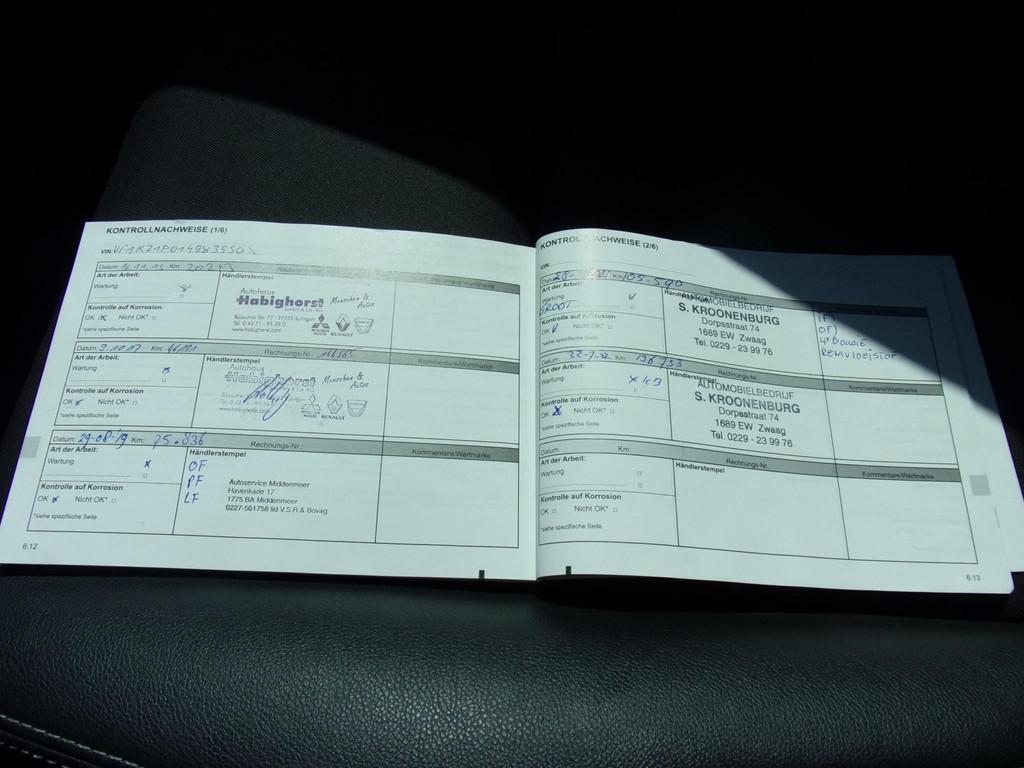 KONTROLLNACHWEISE (1/6)
VIN:
Datum: Km: Rechnungs-Nr.: Kommentare/Wertmarke
Art der Arbeit: Händlerstempel
Wartung
Autohaus
Habighorst Menschen & Autos
GmbH & Co. KG
Kontrolle auf Korrosion
OK Nicht OK*
*siehe spezifische Seite
RENAULT
Datum: Km: Rechnungs-Nr.: Kommentare/Wertmarke
Art der Arbeit: Händlerstempel
Wartung
Autohaus
Habighorst Menschen & Autos
Kontrolle auf Korrosion
OK Nicht OK*
*siehe spezifische Seite
RENAULT
Datum: 29-08-19 Km: 75.836 Rechnungs-Nr.: Kommentare/Wertmarke
Art der Arbeit: Händlerstempel
Wartung x
OF
PF
LF
Kontrolle auf Korrosion
OK x Nicht OK*
*siehe spezifische Seite
Autoservice Middenmeer
Havenkade 17
1775 BA Middenmeer
0227-501758 lid V.S.R.& Bovag
6.12
KONTROLLNACHWEISE (2/6)
VIN:
Km: 105-590 Rechnungs-Nr.:
Art der Arbeit: Händlerstempel
Wartung
GROOT
Kontrolle auf Korrosion
OK Nicht OK*
*siehe spezifische Seite
AUTOMOBIELBEDRIJF
S. KROONENBURG
Dorpsstraat 74
1689 EW Zwaag
Tel. 0229 - 23 99 76
OF)
4* Bougie
Remvloeistof
Datum: Km: 136753 Rechnungs-Nr.: Kommentare/Wertmarke
Art der Arbeit: Händlerstempel
Wartung
Kontrolle auf Korrosion
OK x Nicht OK*
*siehe spezifische Seite
AUTOMOBIELBEDRIJF
S. KROONENBURG
Dorpsstraat 74
1689 EW Zwaag
Tel. 0229 - 23 99 76
Datum: Km: Rechnungs-Nr.: Kommentare/Wertmarke
Art der Arbeit: Händlerstempel
Wartung
Kontrolle auf Korrosion
OK Nicht OK*
*siehe spezifische Seite
6.13